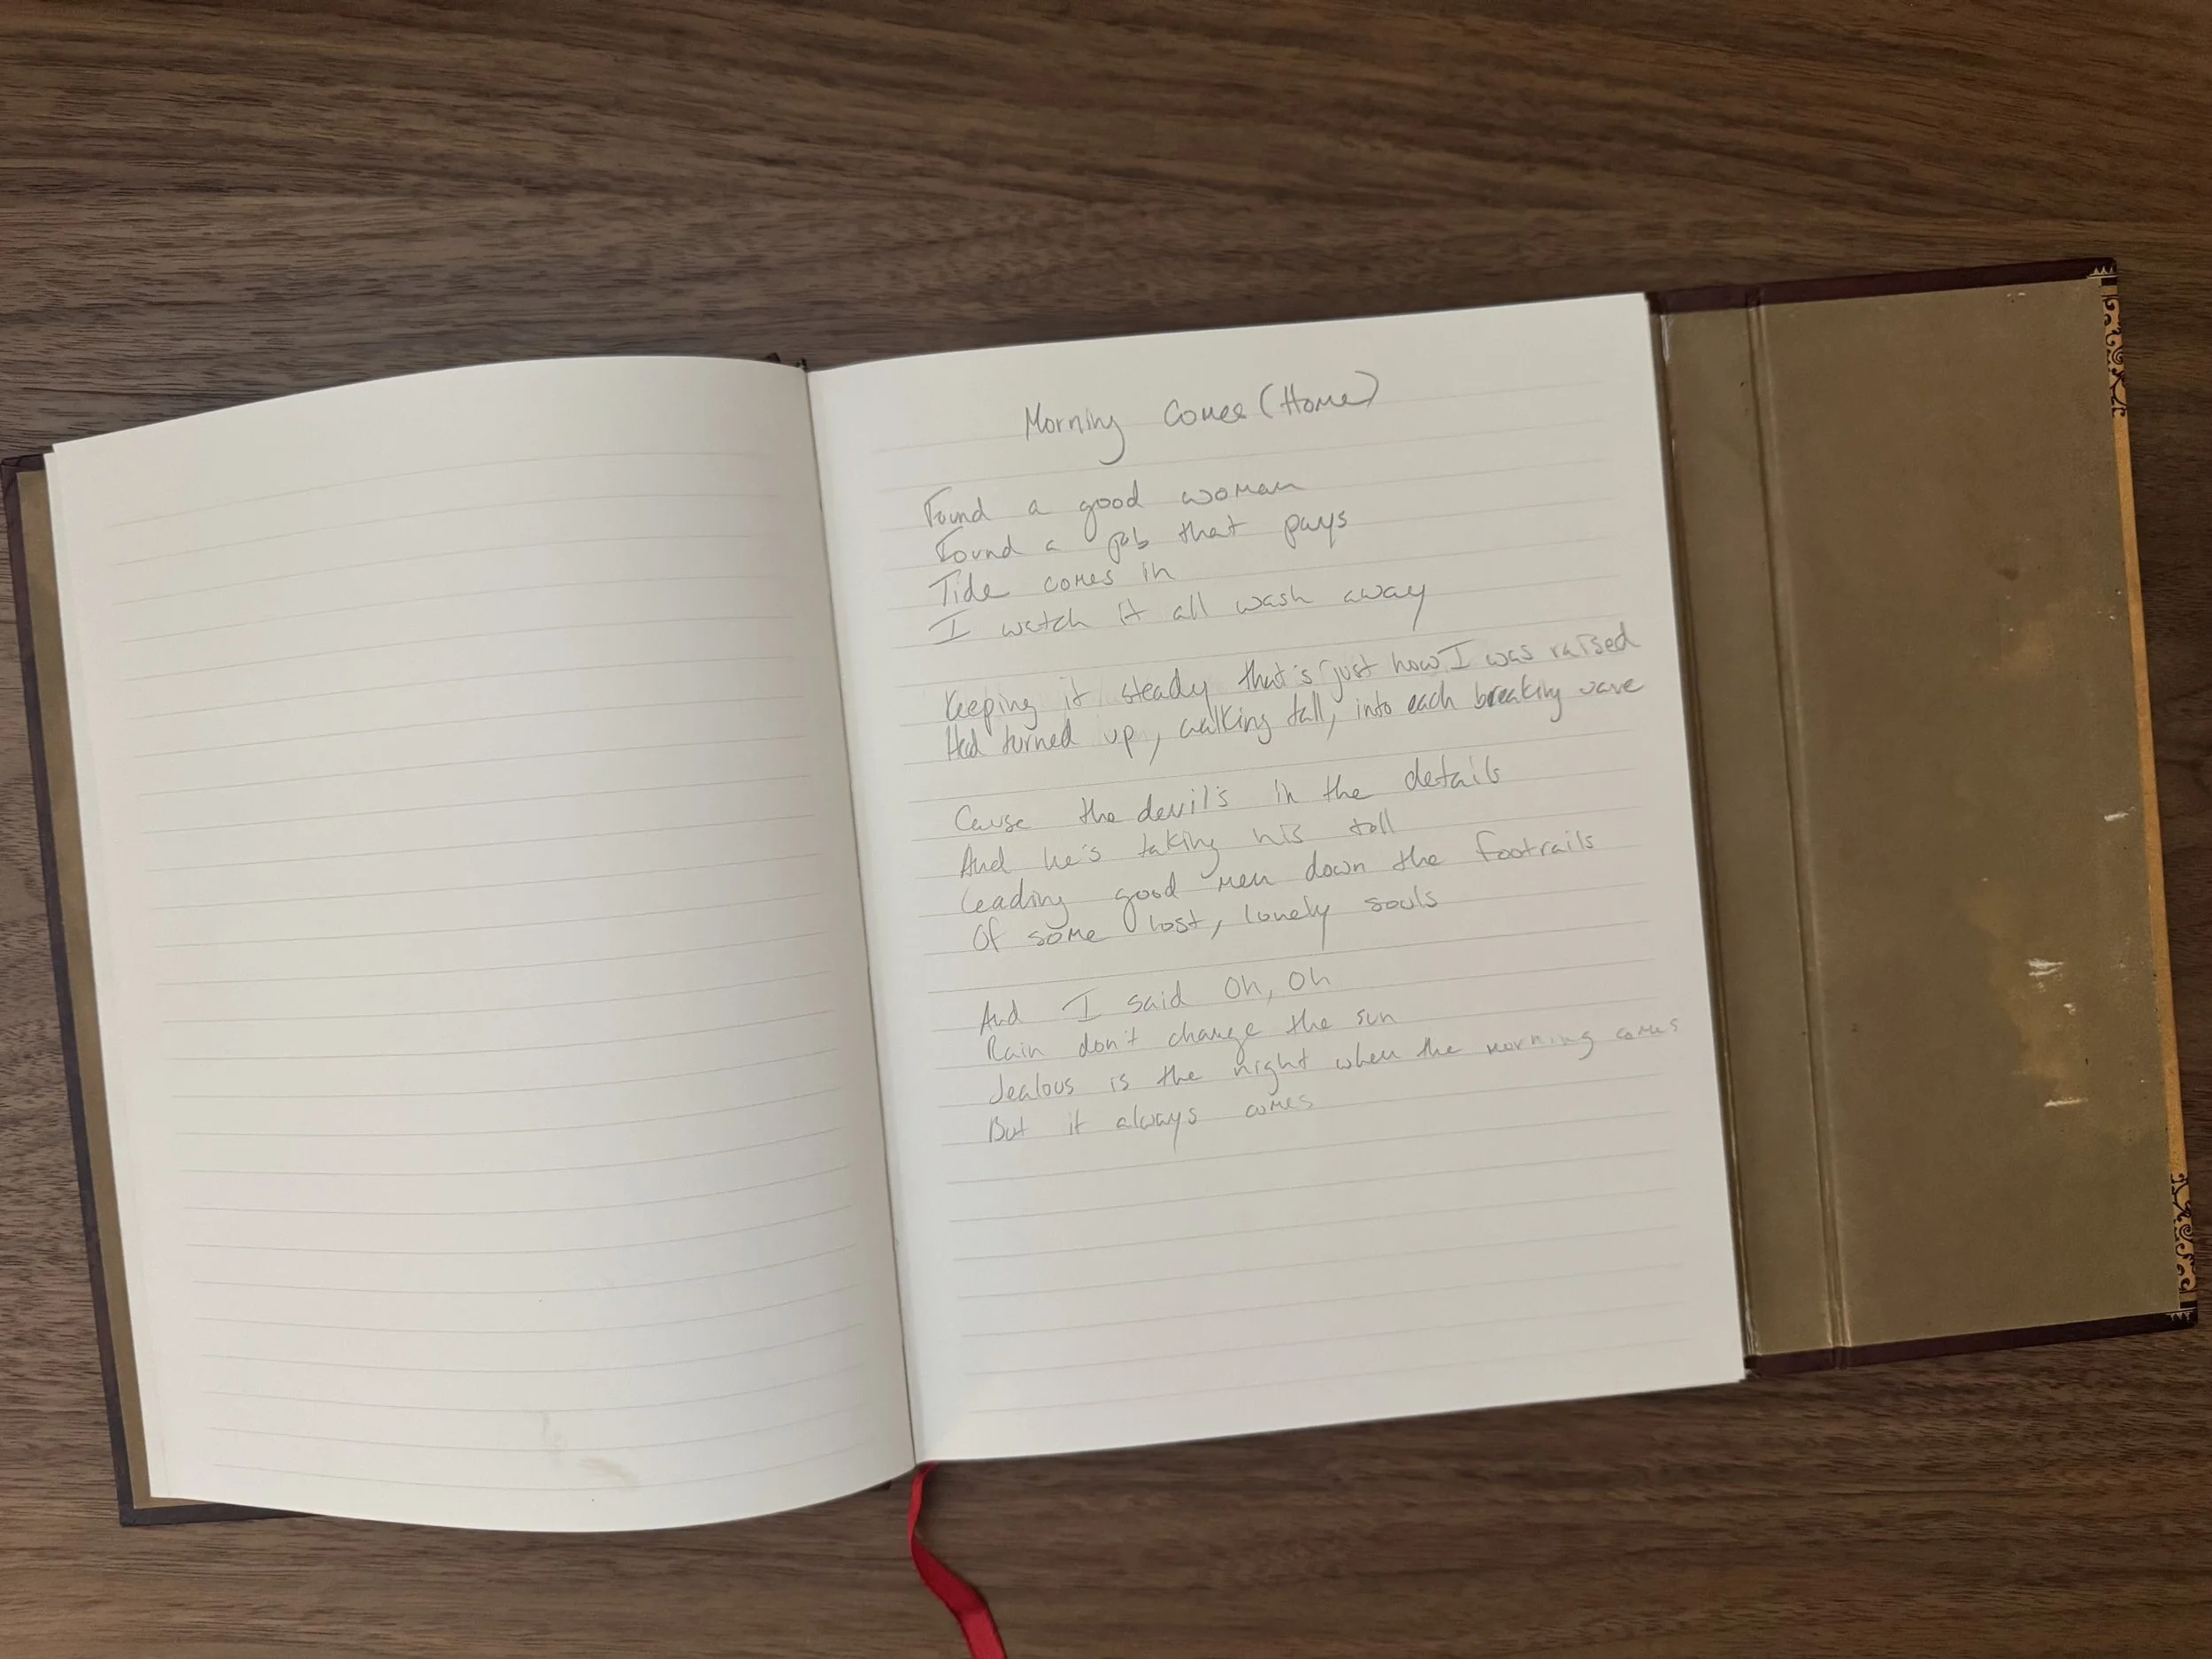 Morning Comes (Home)
Found a good woman
Found a job that pays
Tide comes in
I watch it all wash away
Keeping it steady that's just how I was raised
Head turned up, walking tall, into each breaking wave
Cause the devil's in the details
And he's taking his toll
Leading good men down the footrails
Of some lost, lonely souls
And I said Oh, Oh
Rain don't change the sun
Jealous is the night when the morning comes
But it always comes